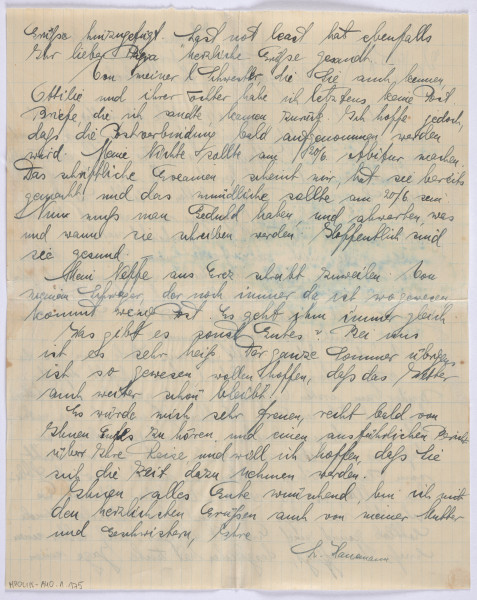 Grüße hinzugefügt. Last not least hat ebenfalls
Ihr lieber Papa herzliche Grüße gesandt.
Von meiner l. Schwester, die Sie auch kennen,
Ottilie und ihrer Tochter habe ich letztens keine Post
Briefe, die ich sandte kamen zurück. Ich hoffe jedoch,
daß die Postverbindung bald aufgenommen werden
wird. Meine Nichte sollte am 20/6. Abitur machen.
Das schriftliche Examen scheint mir, hat sie bereits
gemacht und das mündliche sollte am 20/6 sein.
Nun muß man Geduld haben und abwarten, was
und wann sie schreiben werden. Hoffentlich sind
sie gesund.
Mein Neffe aus Erez schreibt zuweilen. Von
meinem Schwager, der noch immer da ist wo gewesen
kommt wenig Post. Es geht ihm immer gleich
Was gibt es sonst Gutes? Bei uns
ist es sehr heiß. Der ganze Sommer übrigens
ist so gewesen, wollen hoffen, daß das Wetter
auch weiter schön bleibt.
Es würde mich sehr freuen, recht bald von
Ihnen Gutes zu hören, und einen ausführlichen Bericht
über Ihre Reise und will ich hoffen, daß Sie
sich die Zeit dazu nehmen werden.
Ihnen alles Gute wünschend, bin ich mit
den herzlichsten Grüßen auch von meiner Mutter
und Geschwistern, Ihre